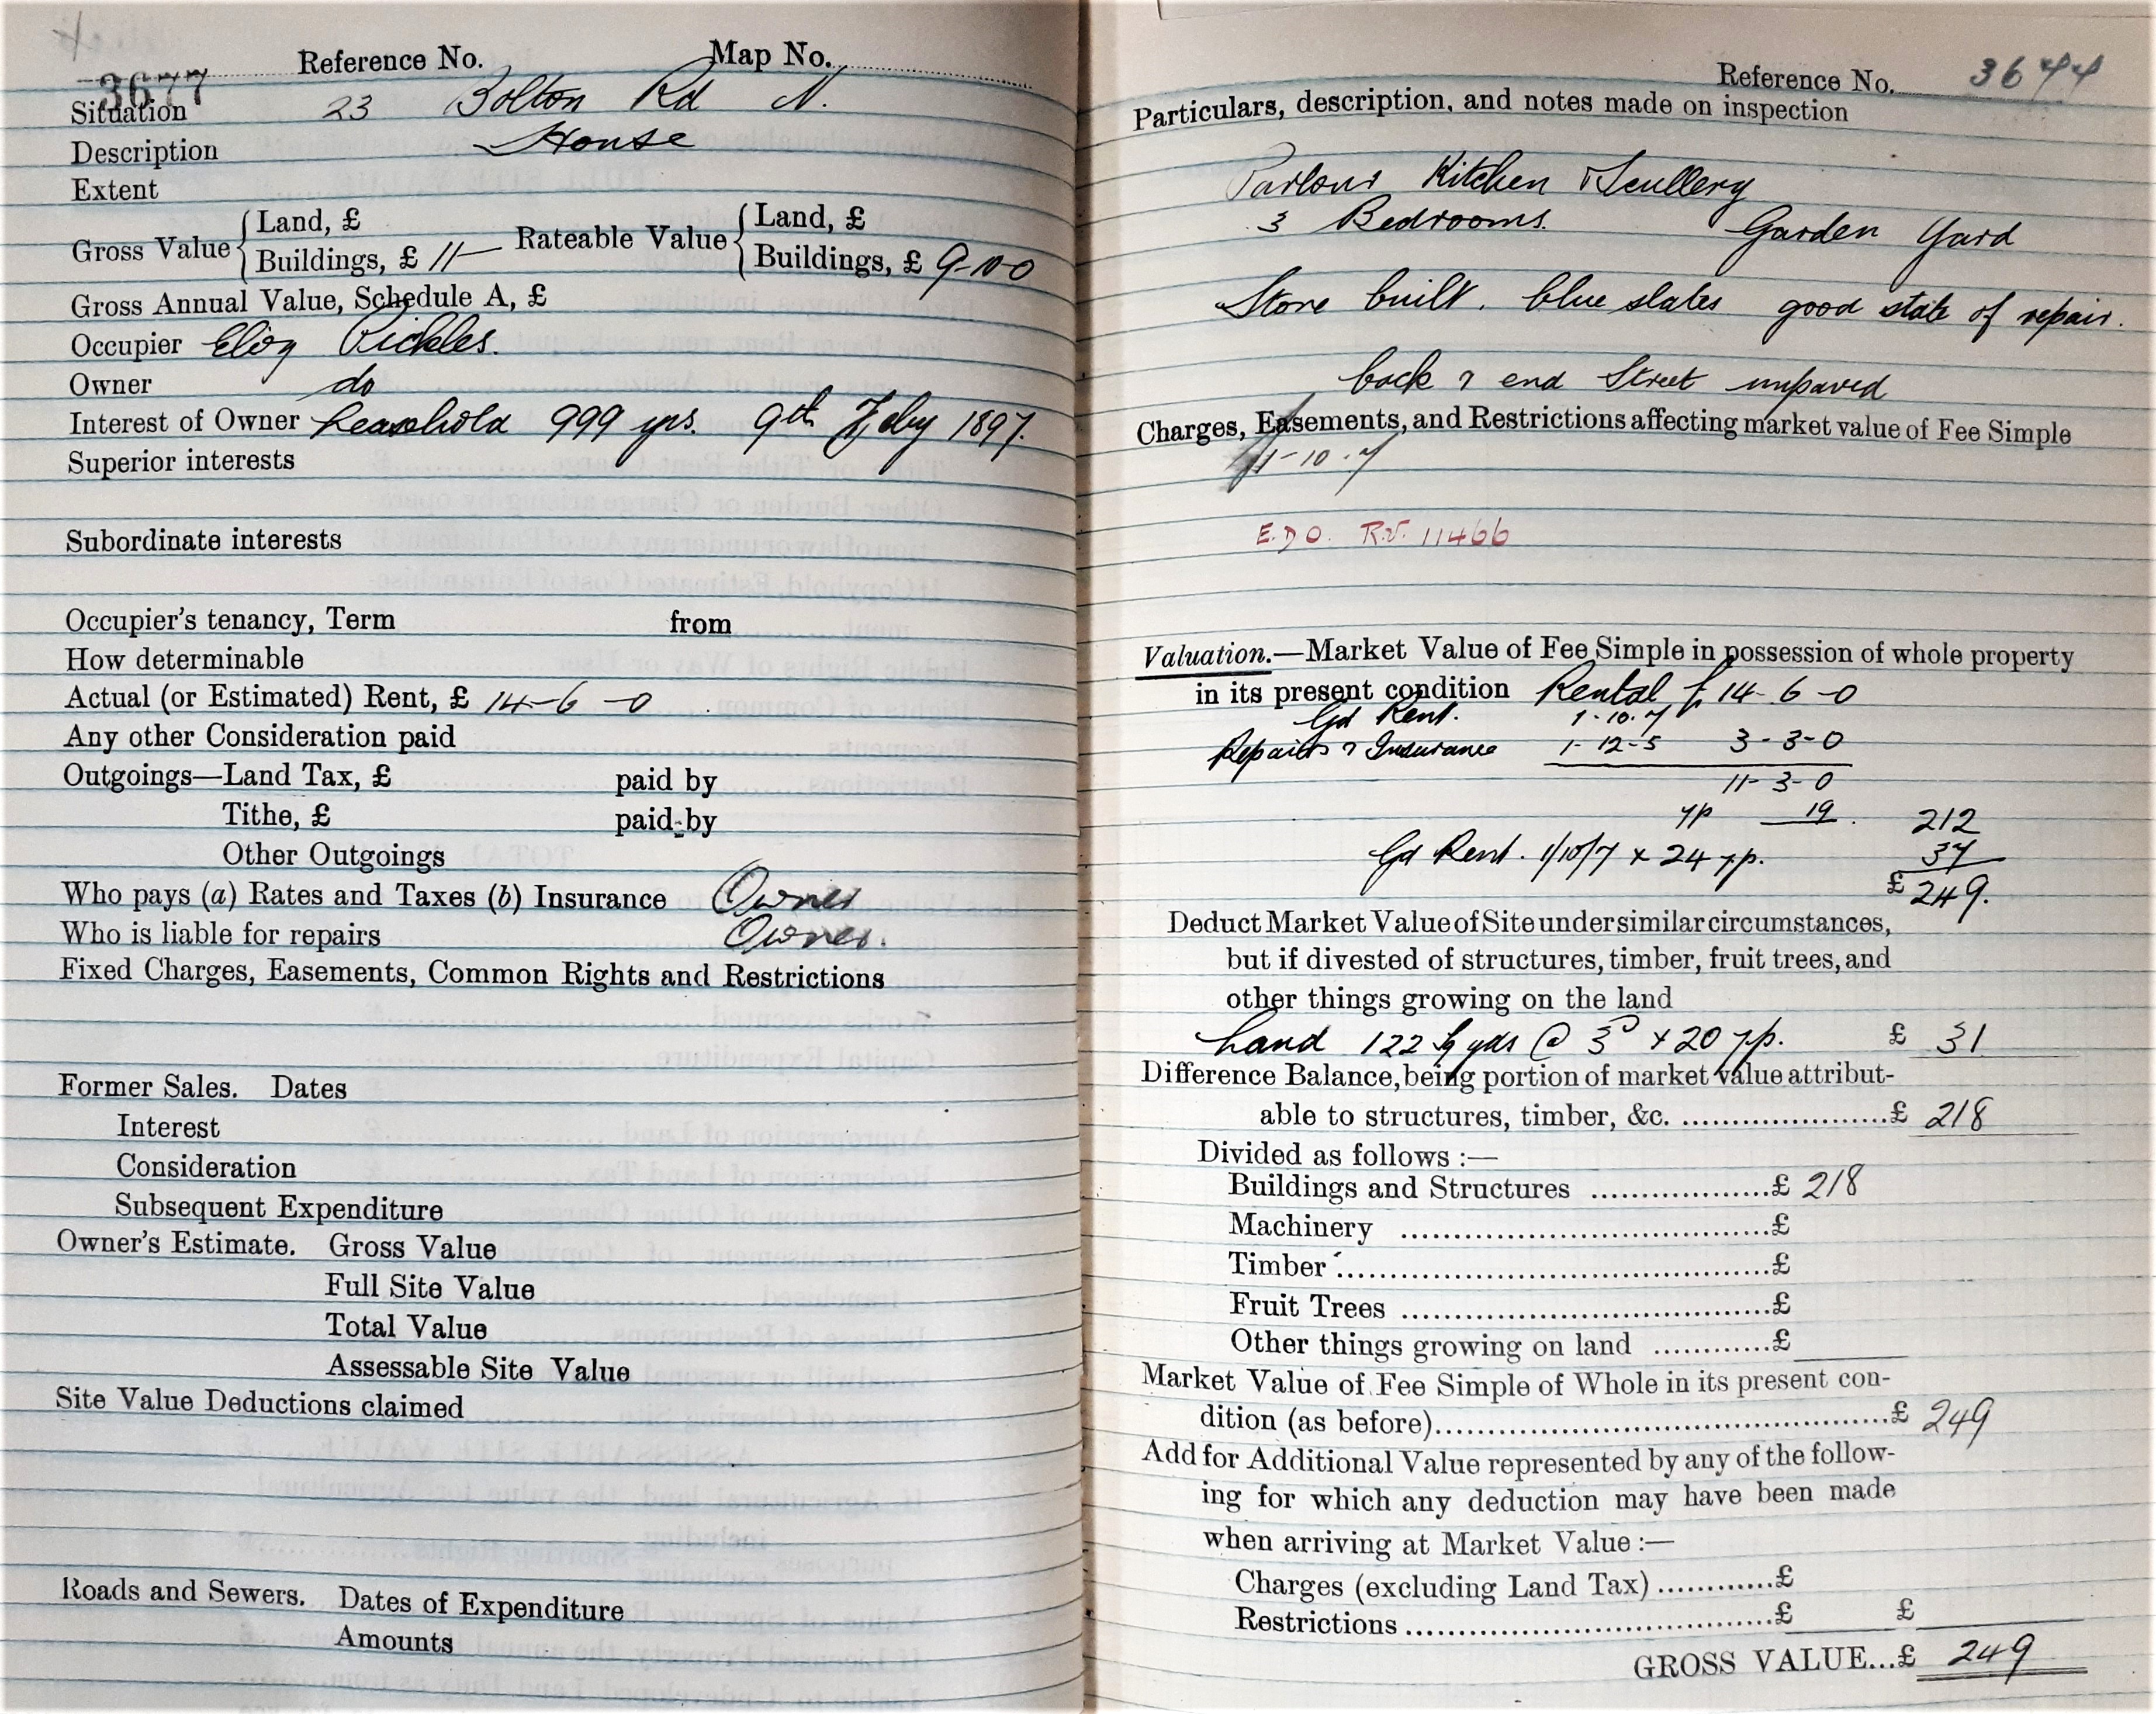 Reference No. Map No.
3677
Situation 23 Bolton Rd N.
Description House
Extent
Gross Value { Land, £ Rateable Value { Land, £
Buildings, £ 11— Buildings, £ 9-10-0
Gross Annual Value, Schedule A, £
Occupier Pickles.
Owner do
Interest of Owner Leasehold 999 yrs. 9th Feby 1897.
Superior interests
Subordinate interests
Occupier's tenancy, Term from
How determinable
Actual (or Estimated) Rent, £ 14-6-0
Any other Consideration paid
Outgoings—Land Tax, £ paid by
Tithe, £ paid by
Other Outgoings
Who pays (a) Rates and Taxes (b) Insurance Owner
Who is liable for repairs Owner.
Fixed Charges, Easements, Common Rights and Restrictions
Former Sales. Dates
Interest
Consideration
Subsequent Expenditure
Owner's Estimate. Gross Value
Full Site Value
Total Value
Assessable Site Value
Site Value Deductions claimed
Roads and Sewers. Dates of Expenditure
Amounts
Reference No. 3677
Particulars, description, and notes made on inspection
Parlour Kitchen & Scullery
3 Bedrooms. Garden Yard
Stone built. blue slates good state of repair.
back & end Street unpaved
Charges, Easements, and Restrictions affecting market value of Fee Simple
1-10-7
E.D.O. R.V. 11466
Valuation.—Market Value of Fee Simple in possession of whole property
in its present condition Rental £14-6-0
Gd Rent. 1-10-7
Repairs & Insurance 1-12-5 3-3-0
11-3-0
yp 19. 212
Gd Rent. 1/10/7 x 24 yp. 37
£ 249.
Deduct Market Value of Site under similar circumstances,
but if divested of structures, timber, fruit trees, and
other things growing on the land
Land 122 Sq yds @ 3D x 20 yp. £ 31
Difference Balance, being portion of market value attribut-
able to structures, timber, &c. ...................... £ 218
Divided as follows :—
Buildings and Structures ................... £ 218
Machinery ....................................... £
Timber ........................................... £
Fruit Trees ...................................... £
Other things growing on land ............ £
Market Value of Fee Simple of Whole in its present con-
dition (as before)............................................... £ 249
Add for Additional Value represented by any of the follow-
ing for which any deduction may have been made
when arriving at Market Value :—
Charges (excluding Land Tax) ............ £
Restrictions ...................................... £ £
GROSS VALUE... £ 249